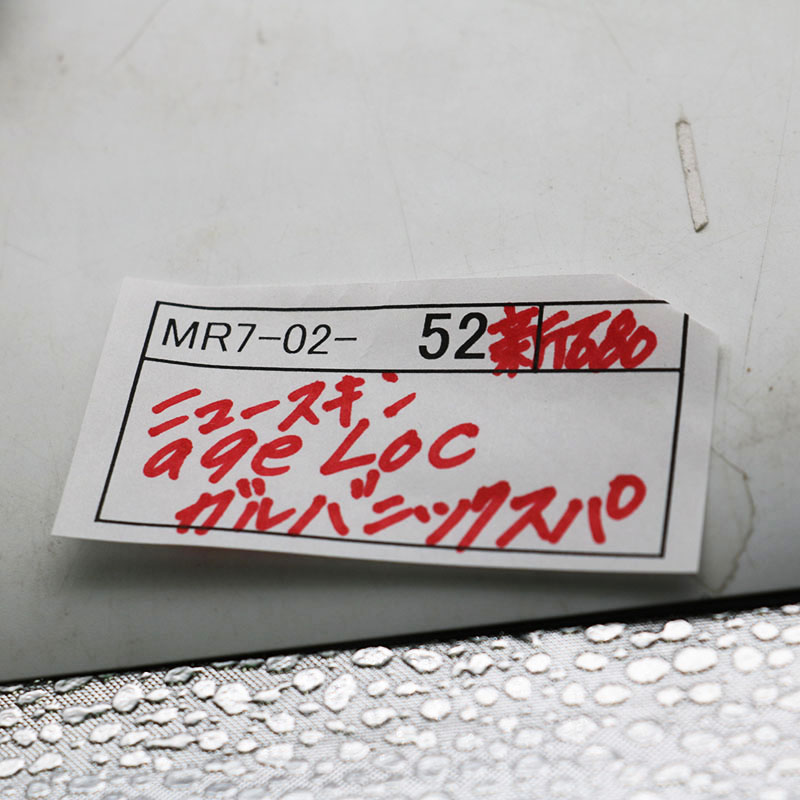 MR7-02- 52 新1680
ニュースキン
ageLoc
ガルバニックスパ